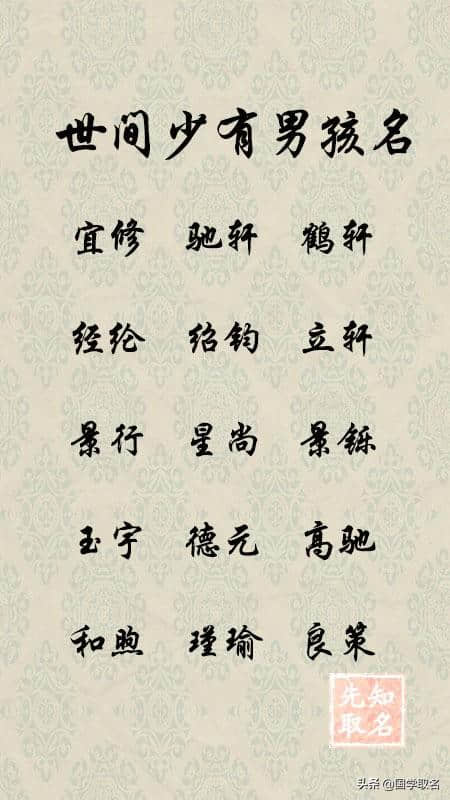 世间少有男孩名
宜修 驰轩 鹤轩
经纶 绍钧 立轩
景行 星尚 景铄
玉宇 德元 高驰
和煦 瑾瑜 良策
先知
取名
头条 @国学取名